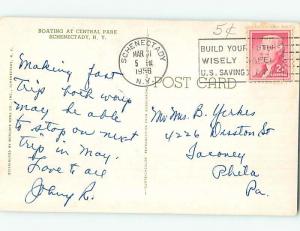 BOATING AT CENTRAL PARK
SCHENECTADY, N. Y.
Making fast
trip both ways
may be able
to stop on next
trip in May.
Love to all
Johny R.
SCHENECTADY
MAR 31
5 PM
1956
N.Y.
5¢
BUILD YOUR FUTURE
WISELY
U.S. SAVINGS
2¢
POST CARD
Mr Mrs. B. Yerkes
4226 Disston St
Tacony
Phila
Pa.